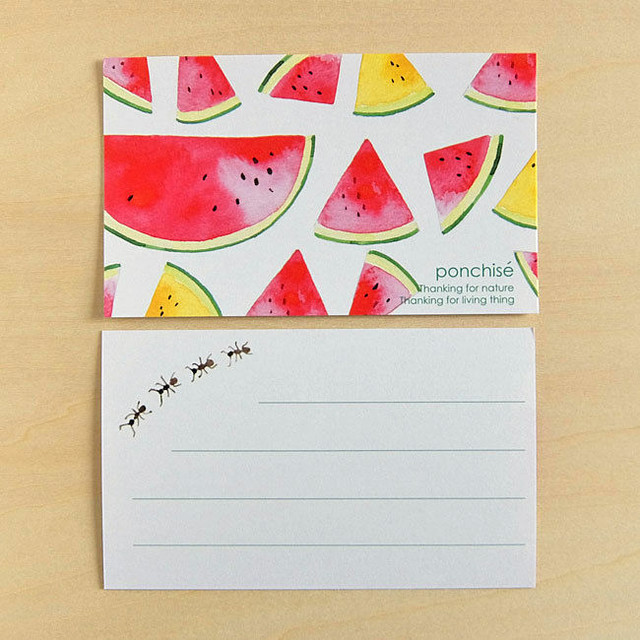 ponchisé
Thanking for nature
Thanking for living thing